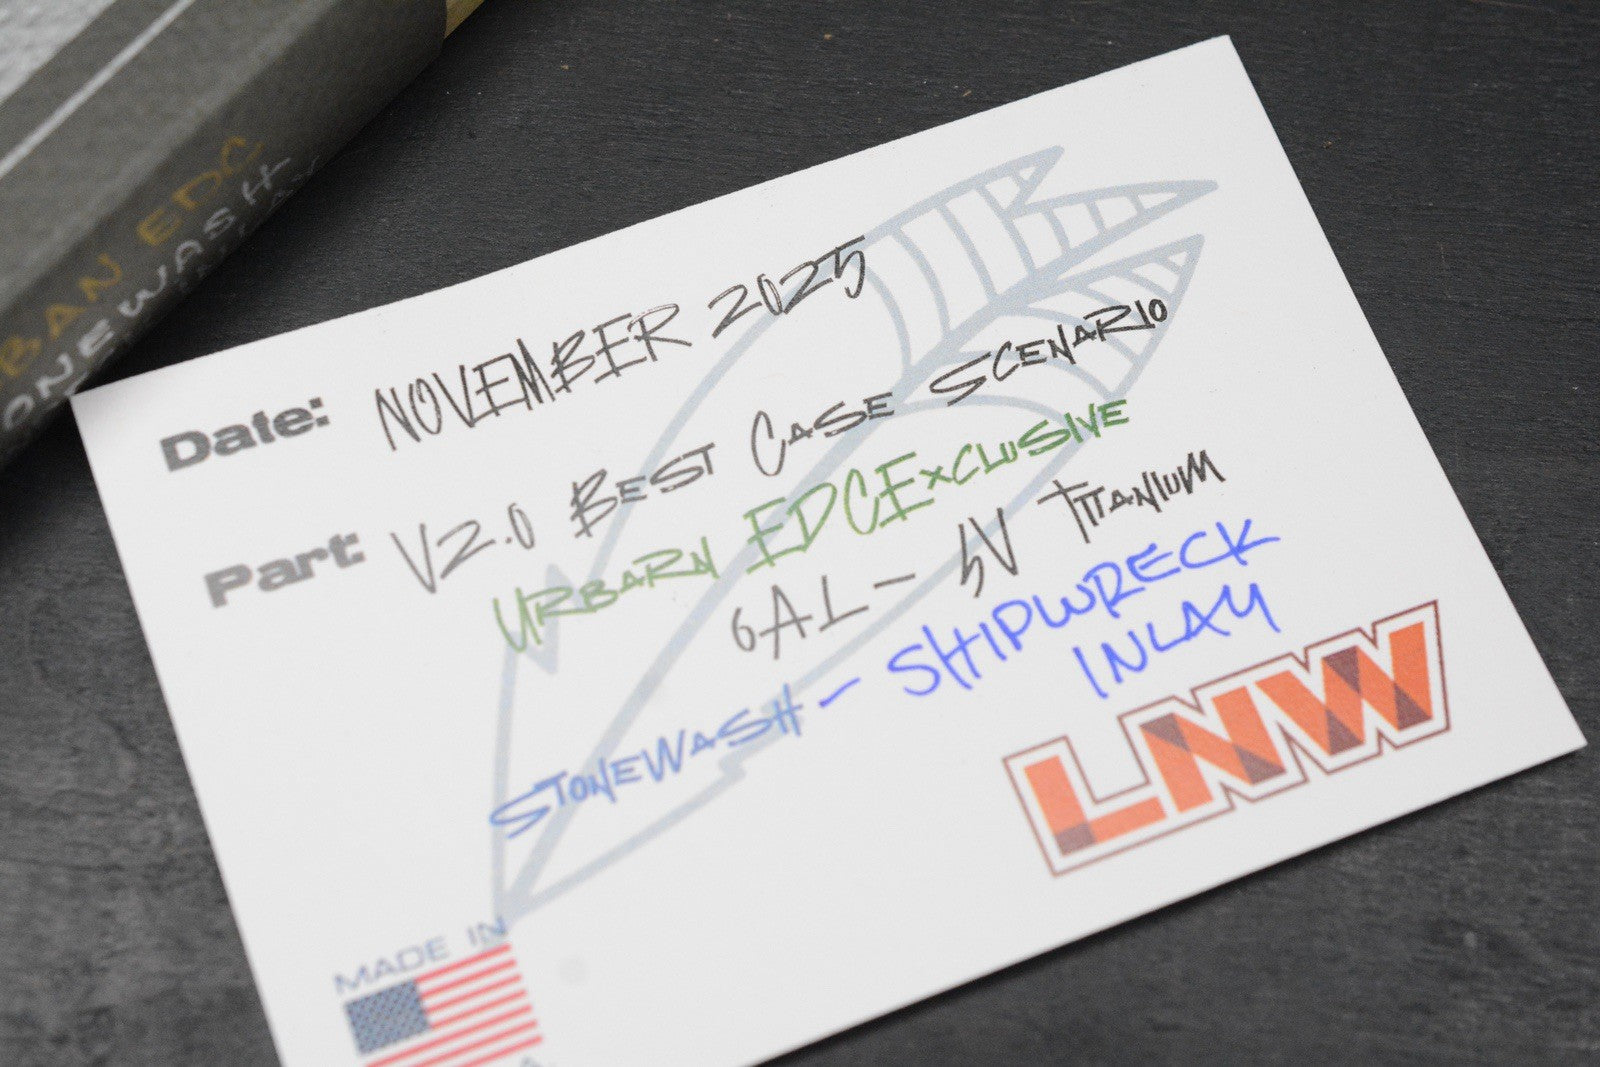 BAN EDC
ONEWASH
Date: NOVEMBER 2025
Part: V2.0 BEST CASE SCENARIO
URBAN EDC EXCLUSIVE
6AL-5V TITANIUM
STONEWASH - SHIPWRECK
INLAY
LNW
MADE IN